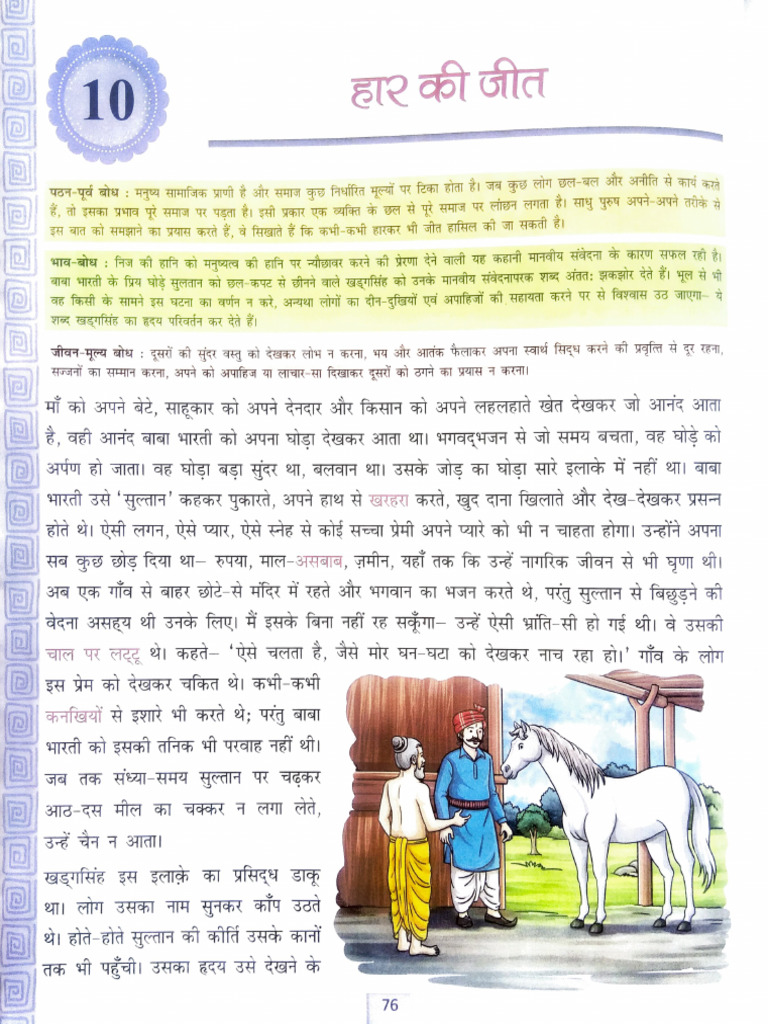 10
हार की जीत
पठन-पूर्व बोध : मनुष्य सामाजिक प्राणी है और समाज कुछ निर्धारित मूल्यों पर टिका होता है। जब कुछ लोग छल-बल और अनीति से कार्य करते
हैं, तो इसका प्रभाव पूरे समाज पर पड़ता है। इसी प्रकार एक व्यक्ति के छल से पूरे समाज पर लांछन लगता है। साधु पुरुष अपने-अपने तरीके से
इस बात को समझाने का प्रयास करते हैं, वे सिखाते हैं कि कभी-कभी हारकर भी जीत हासिल की जा सकती है।
भाव-बोध : निज की हानि को मनुष्यत्व की हानि पर न्यौछावर करने की प्रेरणा देने वाली यह कहानी मानवीय संवेदना के कारण सफल रही है।
बाबा भारती के प्रिय घोड़े सुलतान को छल-कपट से छीनने वाले खड्गसिंह को उनके मानवीय संवेदनापरक शब्द अंततः झकझोर देते हैं। भूल से भी
वह किसी के सामने इस घटना का वर्णन न करे, अन्यथा लोगों का दीन-दुखियों एवं अपाहिजों की सहायता करने पर से विश्वास उठ जाएगा– ये
शब्द खड्गसिंह का हृदय परिवर्तन कर देते हैं।
जीवन-मूल्य बोध : दूसरों की सुंदर वस्तु को देखकर लोभ न करना, भय और आतंक फैलाकर अपना स्वार्थ सिद्ध करने की प्रवृत्ति से दूर रहना,
सज्जनों का सम्मान करना, अपने को अपाहिज या लाचार-सा दिखाकर दूसरों को ठगने का प्रयास न करना।
माँ को अपने बेटे, साहूकार को अपने देनदार और किसान को अपने लहलहाते खेत देखकर जो आनंद आता
है, वही आनंद बाबा भारती को अपना घोड़ा देखकर आता था। भगवद्भजन से जो समय बचता, वह घोड़े को
अर्पण हो जाता। वह घोड़ा बड़ा सुंदर था, बलवान था। उसके जोड़ का घोड़ा सारे इलाके में नहीं था। बाबा
भारती उसे ‘सुल्तान’ कहकर पुकारते, अपने हाथ से खरहरा करते, खुद दाना खिलाते और देख-देखकर प्रसन्न
होते थे। ऐसी लगन, ऐसे प्यार, ऐसे स्नेह से कोई सच्चा प्रेमी अपने प्यारे को भी न चाहता होगा। उन्होंने अपना
सब कुछ छोड़ दिया था– रुपया, माल-असबाब, ज़मीन, यहाँ तक कि उन्हें नागरिक जीवन से भी घृणा थी।
अब एक गाँव से बाहर छोटे-से मंदिर में रहते और भगवान का भजन करते थे, परंतु सुल्तान से बिछुड़ने की
वेदना असह्य थी उनके लिए। मैं इसके बिना नहीं रह सकूँगा– उन्हें ऐसी भ्रांति-सी हो गई थी। वे उसकी
चाल पर लट्टू थे। कहते– ‘ऐसे चलता है, जैसे मोर घन-घटा को देखकर नाच रहा हो।’ गाँव के लोग
इस प्रेम को देखकर चकित थे। कभी-कभी
कनखियों से इशारे भी करते थे; परंतु बाबा
भारती को इसकी तनिक भी परवाह नहीं थी।
जब तक संध्या-समय सुल्तान पर चढ़कर
आठ-दस मील का चक्कर न लगा लेते,
उन्हें चैन न आता।
खड्गसिंह इस इलाक़े का प्रसिद्ध डाकू
था। लोग उसका नाम सुनकर काँप उठते
थे। होते-होते सुल्तान की कीर्ति उसके कानों
तक भी पहुँची। उसका हृदय उसे देखने के
76